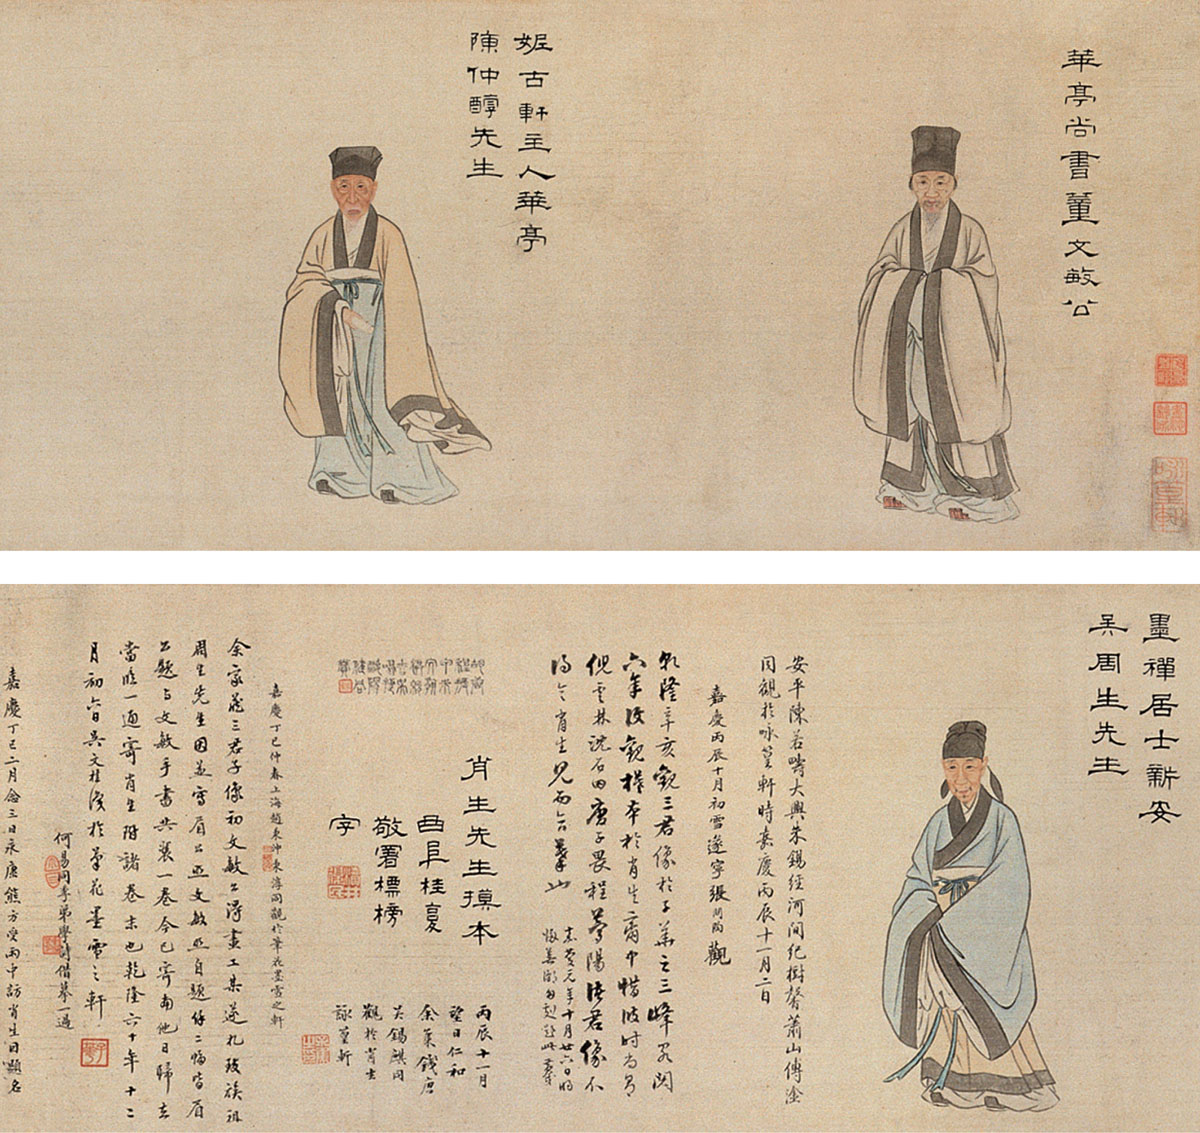 華亭尚書董文敏公
妮古軒主人華亭
陳仲醇先生
墨禪居士新安
吴周生先生
安平陳若疇大興朱錫經河間紀樹馨蕭山傅淦
同觀於咏篁軒時嘉慶丙辰十一月二日
嘉慶丙辰十月初雪遂寧張問陶觀
乾隆辛亥觀三君像於子華之三峰客閣
六年後觀橅本於肖生齋中惜彼時尚有
倪雲林沈石田唐子畏程孟陽諸君像不
得令肖生見而合摹也
嘉慶元年十月廿六日時
肖生先生摸本
曲阜桂馥
敬署標榜
字
丙辰十一月
望日仁和
余集錢唐
吴錫麒同
觀於肖生
詠篁軒
嘉慶丁巳仲春上海趙秉沖東淳同觀於筆花墨雪之軒
余家藏三君子像初文敏公得畫工某遂札致族祖
周生先生因並寫眉公與文敏並自題 皆眉
公題與文敏手書共裝一卷今已寄南他日歸去
當臨一通寄肖生附諸卷末也乾隆六十年十二
月初六日吴文桂識於筆花墨雪之軒
何易同季弟學詩借摹一過
嘉慶丁巳二月念三日永康熊方受雨中訪肖生因題名